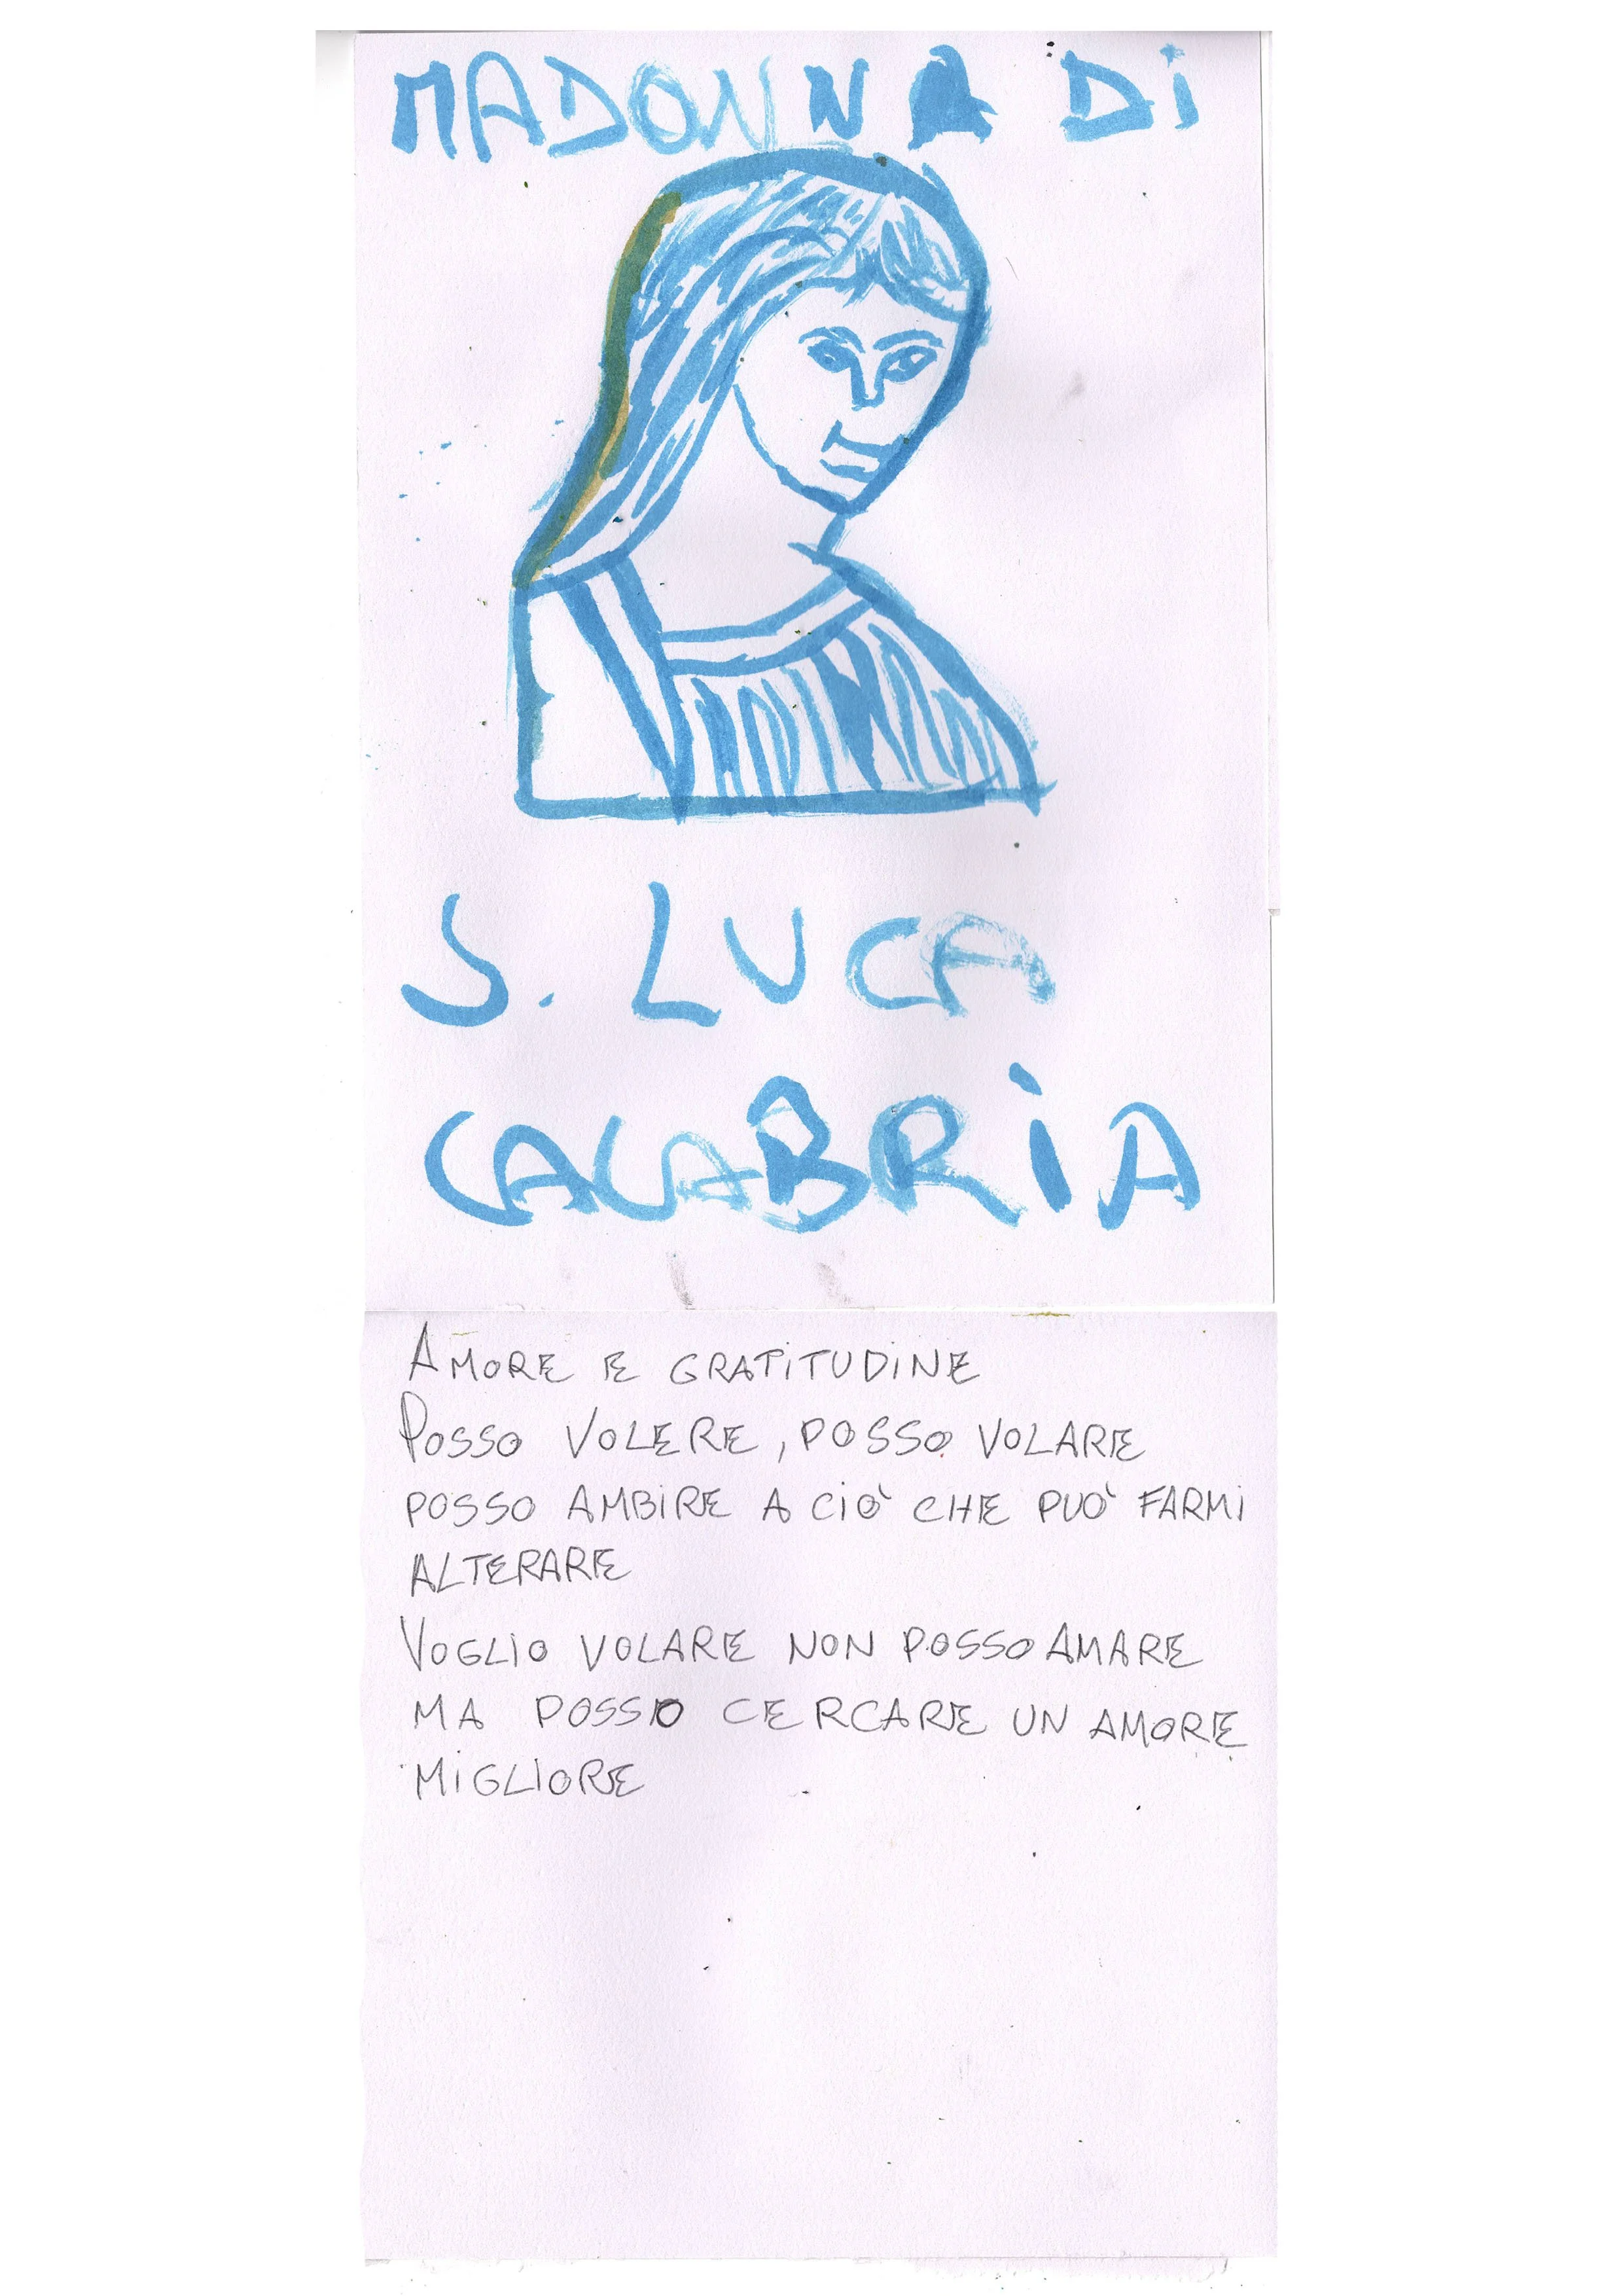 MADONNA DI
S. LUCA
CALABRIA
AMORE E GRATITUDINE
POSSO VOLERE, POSSO VOLARE
POSSO AMBIRE A CIÒ CHE PUÒ FARMI
ALTERARE
VOGLIO VOLARE NON POSSO AMARE
MA POSSO CERCARE UN AMORE
MIGLIORE